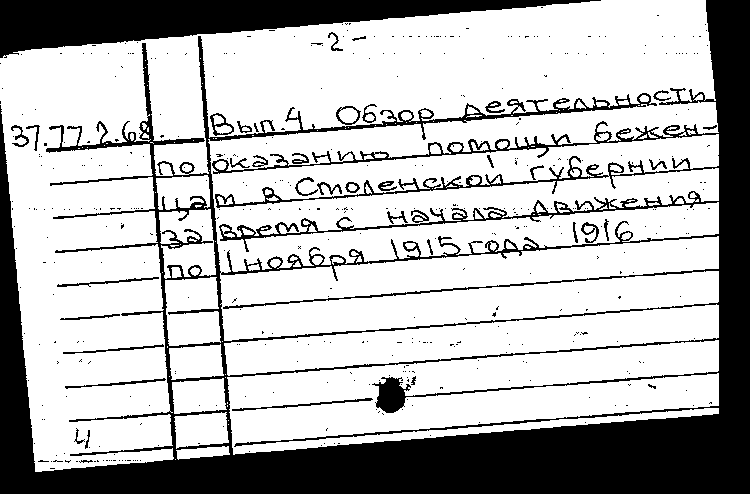 - 2 -
37.77.2.68. Вып.4. Обзор деятельности
по оказанию помощи бежен-
цам в Смоленской губернии
за время с начала движения
по 1 ноября 1915 года. 1916.
4